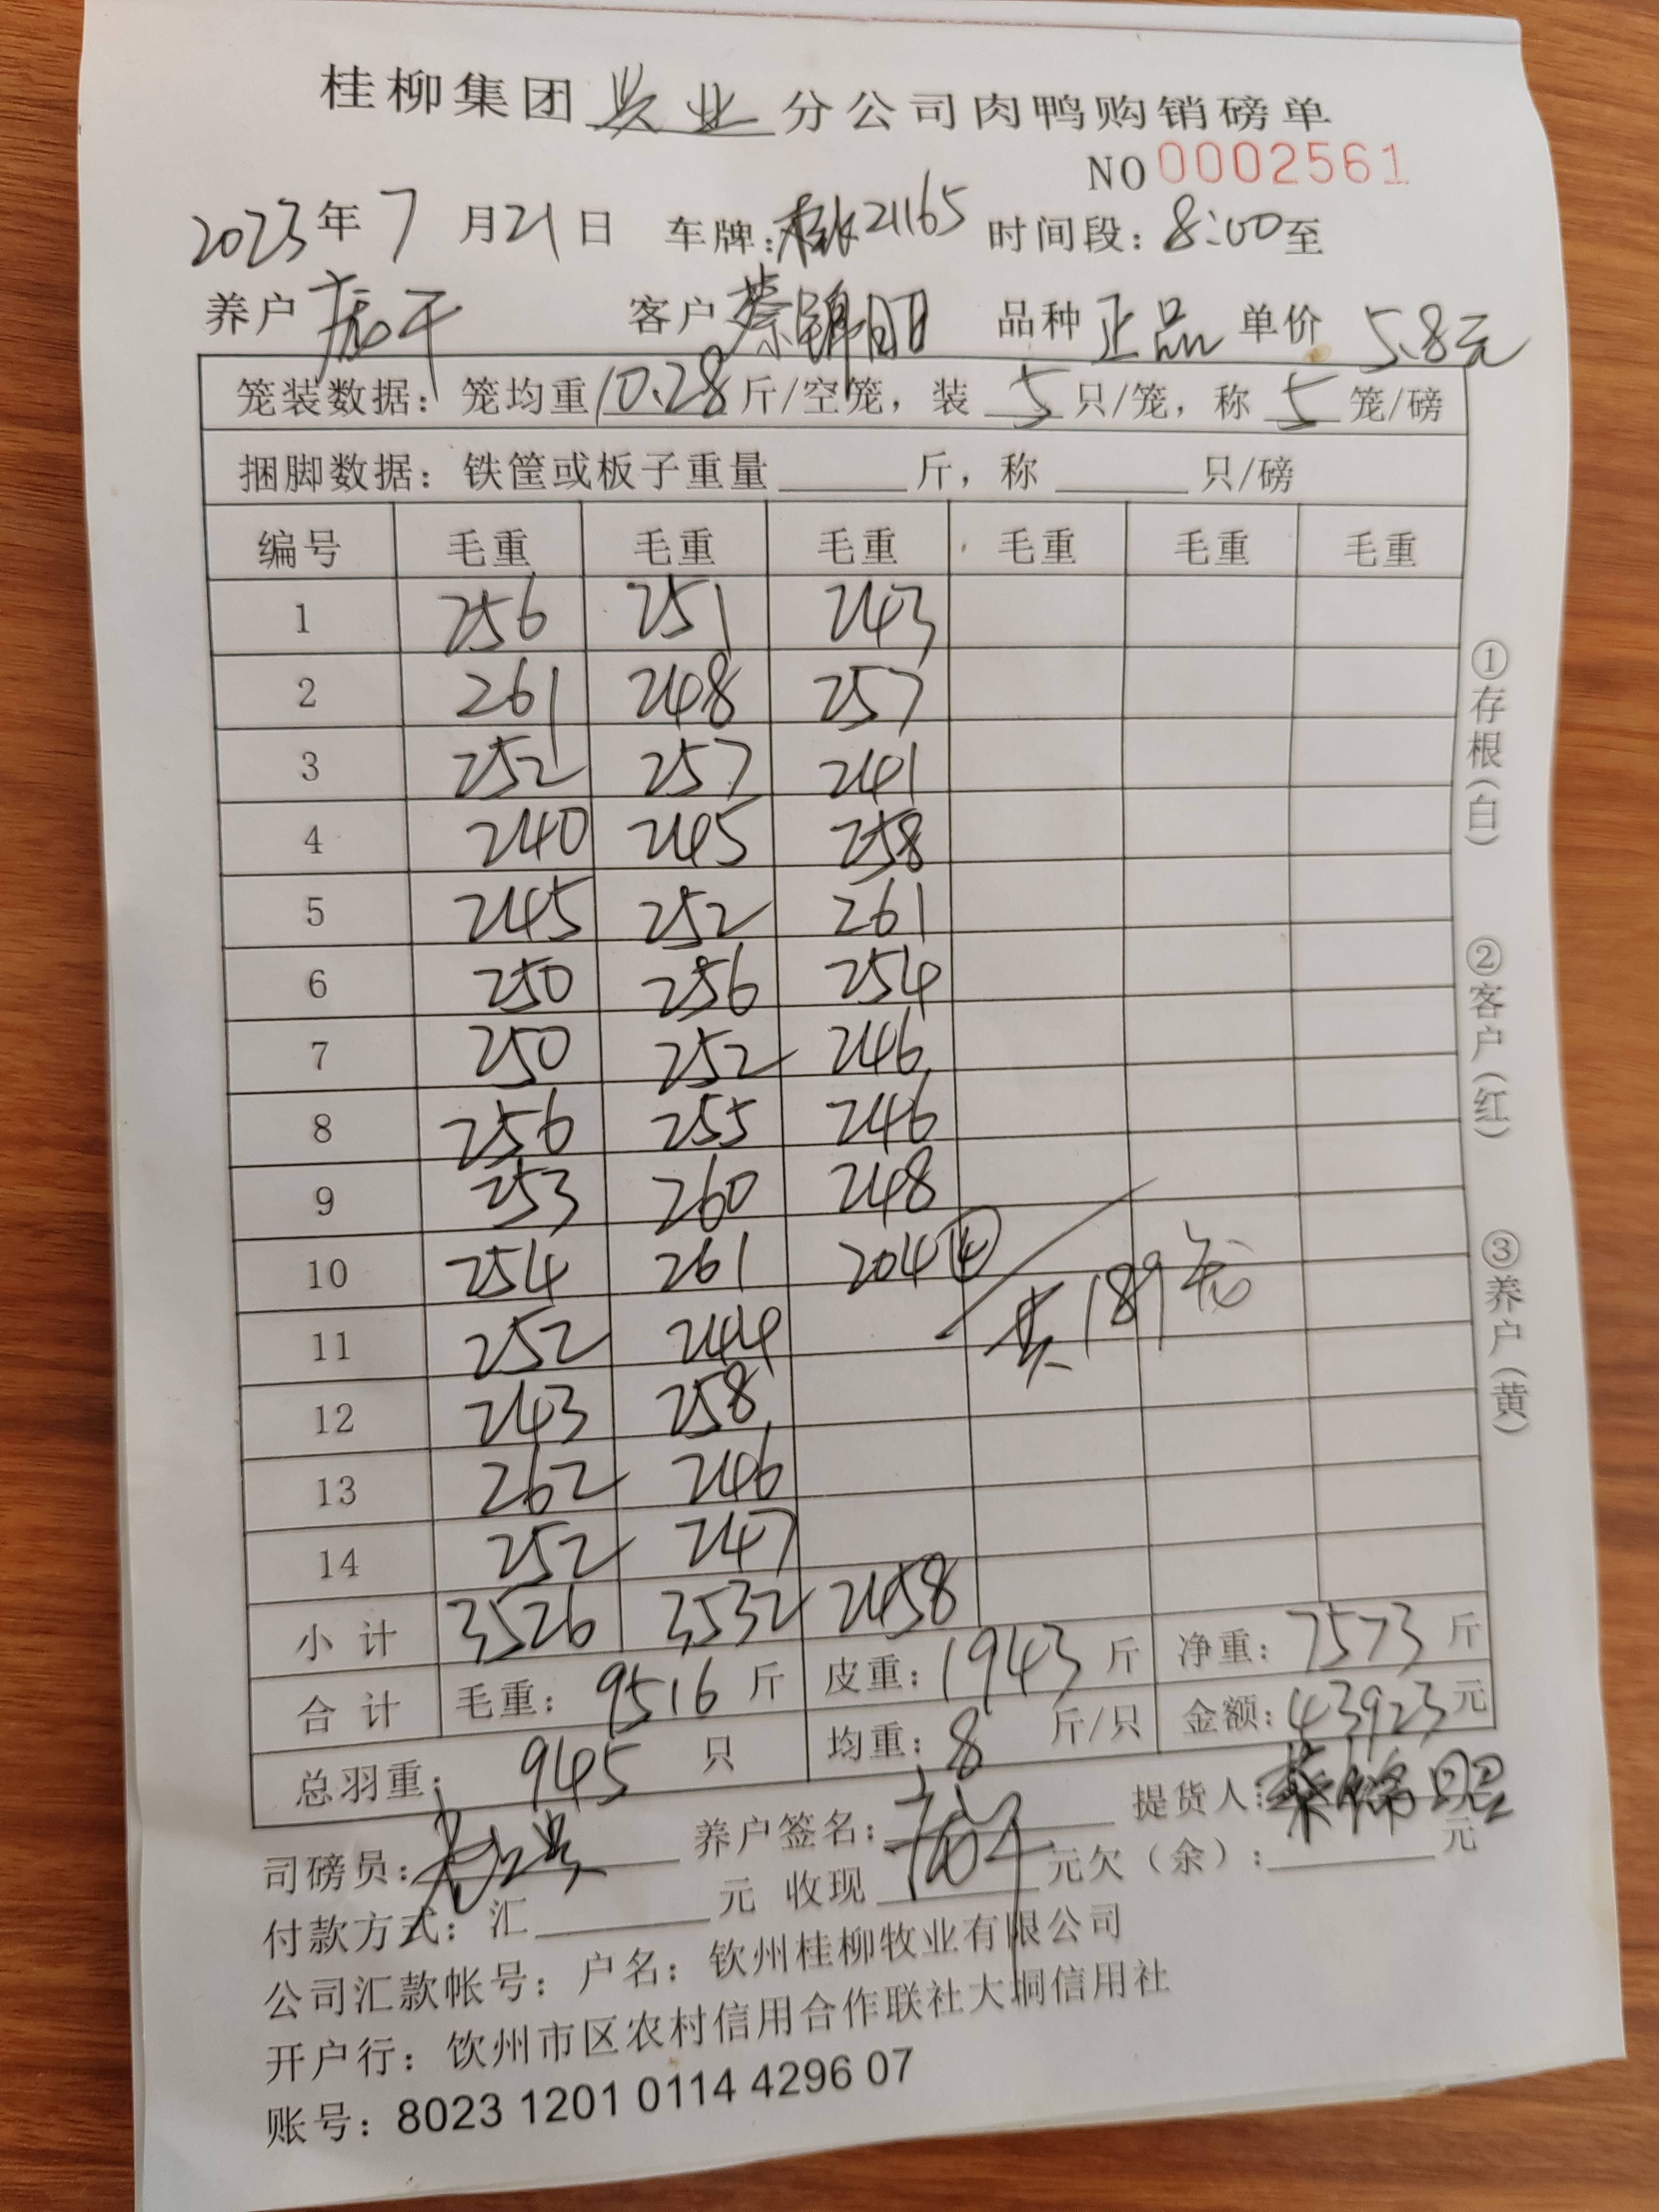 桂柳集团兴业分公司肉鸭购销磅单
NO 0002561
2023年7月21日 车牌:桂K21165 时间段:8:00至
养户 客户 蔡锦昭 品种 正品 单价 5.8元
笼装数据:笼均重10.28斤/空笼,装5只/笼,称5笼/磅
捆脚数据:铁筐或板子重量______斤,称______只/磅
编号 毛重 毛重 毛重 毛重 毛重 毛重
1 256 251 243
2 261 248 257
3 252 257 241
4 240 245 258
5 245 252 261
6 250 256 254
7 250 252 246
8 256 255 246
9 253 260 248
10 254 261 204④ 共189笼
11 252 244
12 243 258
13 262 246
14 252 247
小计 3526 3532 2458
合计 毛重:9516斤 皮重:1943斤 净重:7573斤
总羽重:945只 均重:8斤/只 金额:43923元
司磅员: 养户签名: 提货人:蔡锦昭
付款方式:汇______元 收现______元欠(余):______元
公司汇款帐号:户名:钦州桂柳牧业有限公司
开户行:钦州市区农村信用合作联社大垌信用社
账号:8023 1201 0114 4296 07
①存根(白) ②客户(红) ③养户(黄)